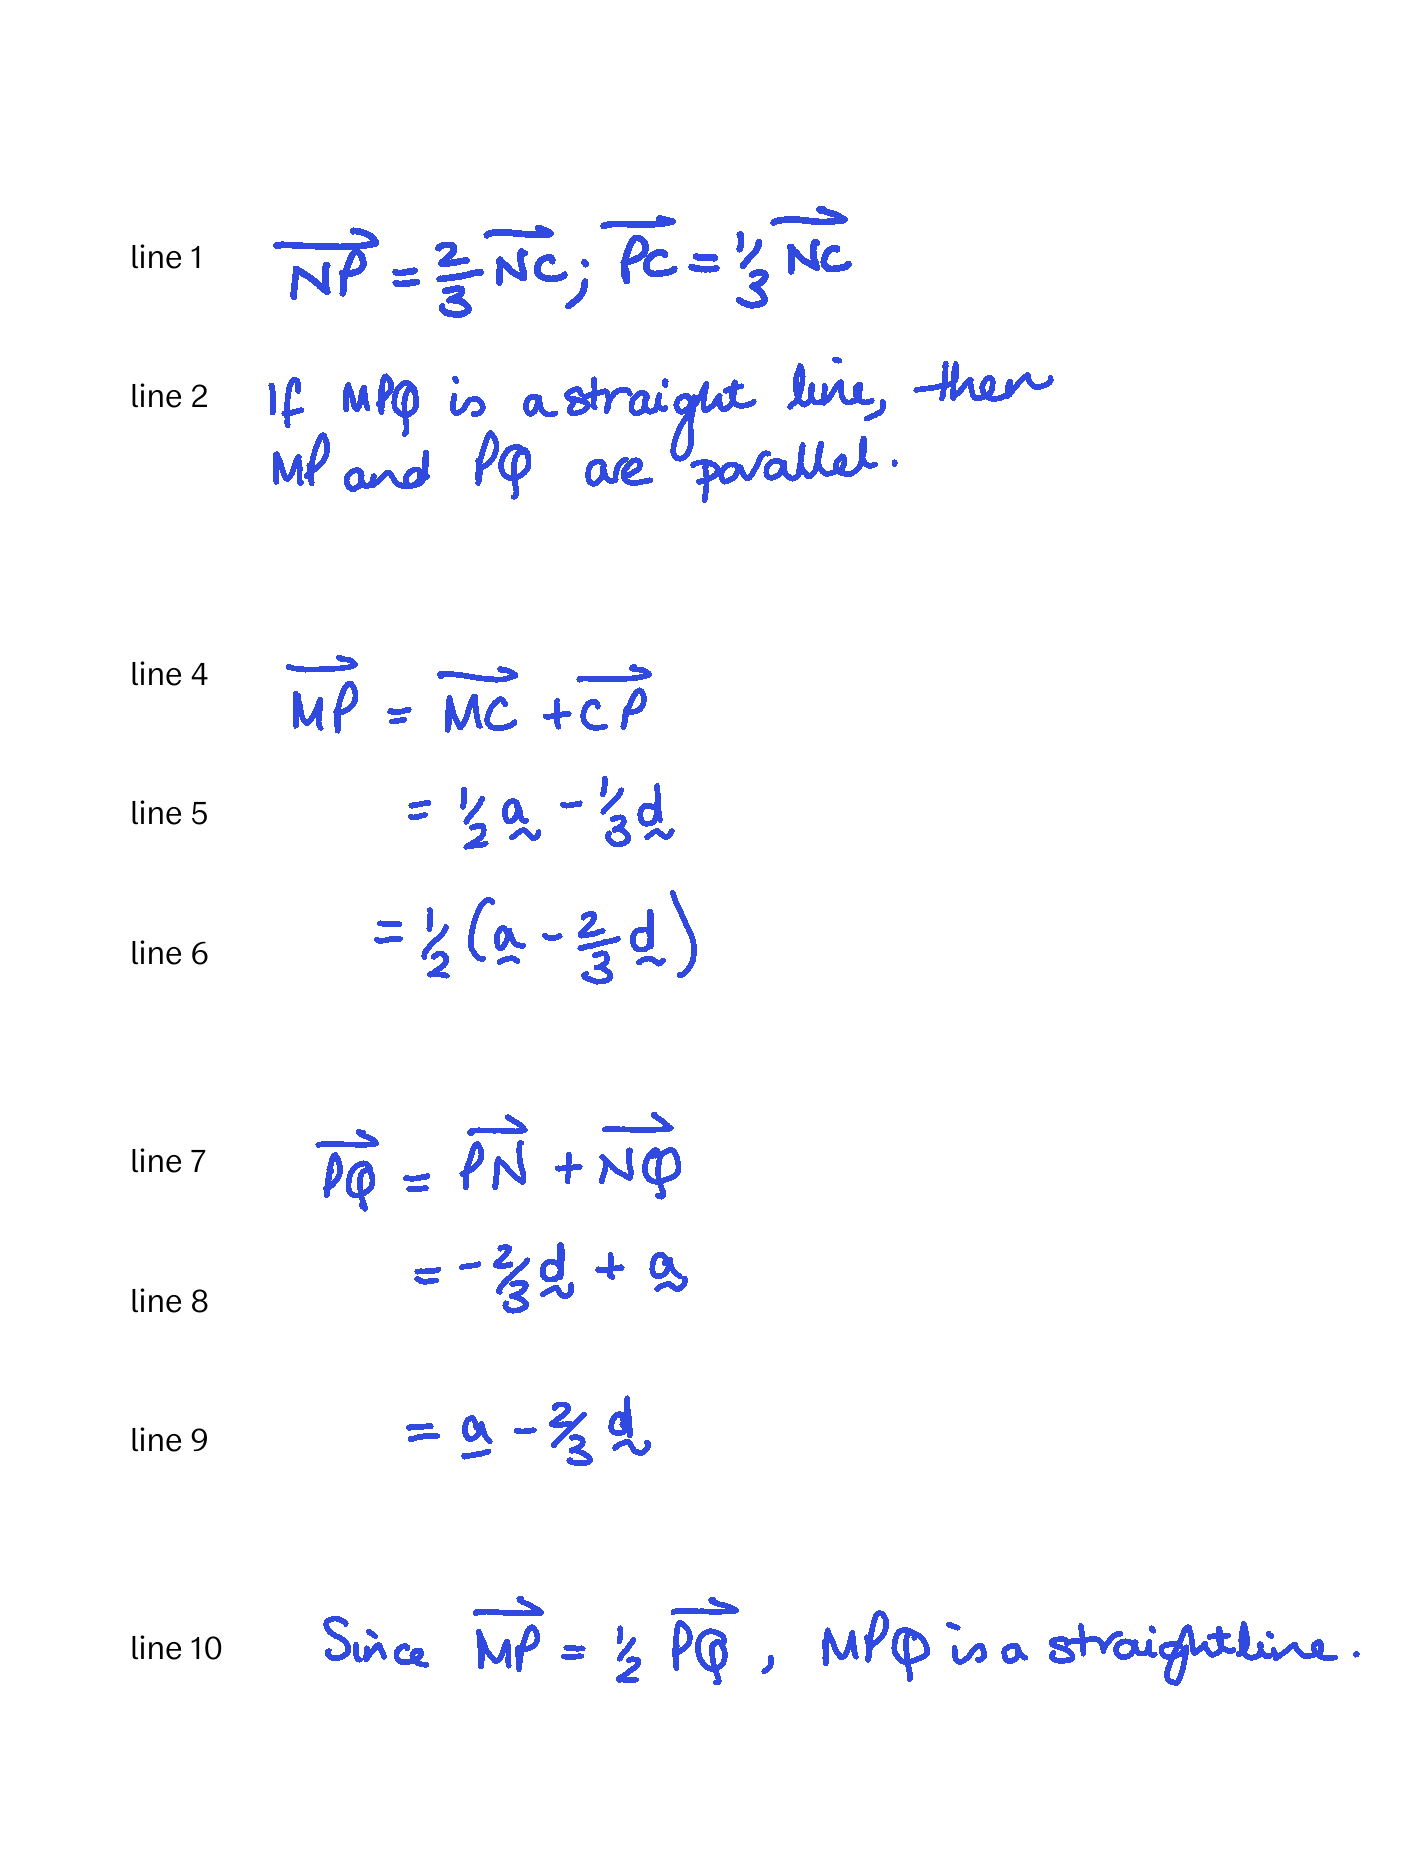 line 1 $\overrightarrow{NP} = \frac{2}{3} \overrightarrow{NC}; \overrightarrow{PC} = \frac{1}{3} \overrightarrow{NC}$
line 2 If MPQ is a straight line, then
MP and PQ are parallel.
line 4 $\overrightarrow{MP} = \overrightarrow{MC} + \overrightarrow{CP}$
line 5 $= \frac{1}{2} \underset{\sim}{a} - \frac{1}{3} \underset{\sim}{d}$
line 6 $= \frac{1}{2} (\underset{\sim}{a} - \frac{2}{3} \underset{\sim}{d})$
line 7 $\overrightarrow{PQ} = \overrightarrow{PN} + \overrightarrow{NQ}$
line 8 $= -\frac{2}{3} \underset{\sim}{d} + \underset{\sim}{a}$
line 9 $= \underline{a} - \frac{2}{3} \underset{\sim}{d}$
line 10 Since $\overrightarrow{MP} = \frac{1}{2} \overrightarrow{PQ}$, MPQ is a straight line.